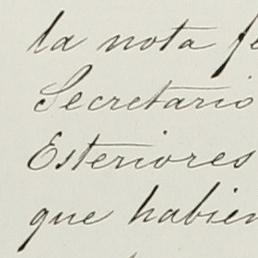 la nota fe
Secretario
Exteriores
que habien